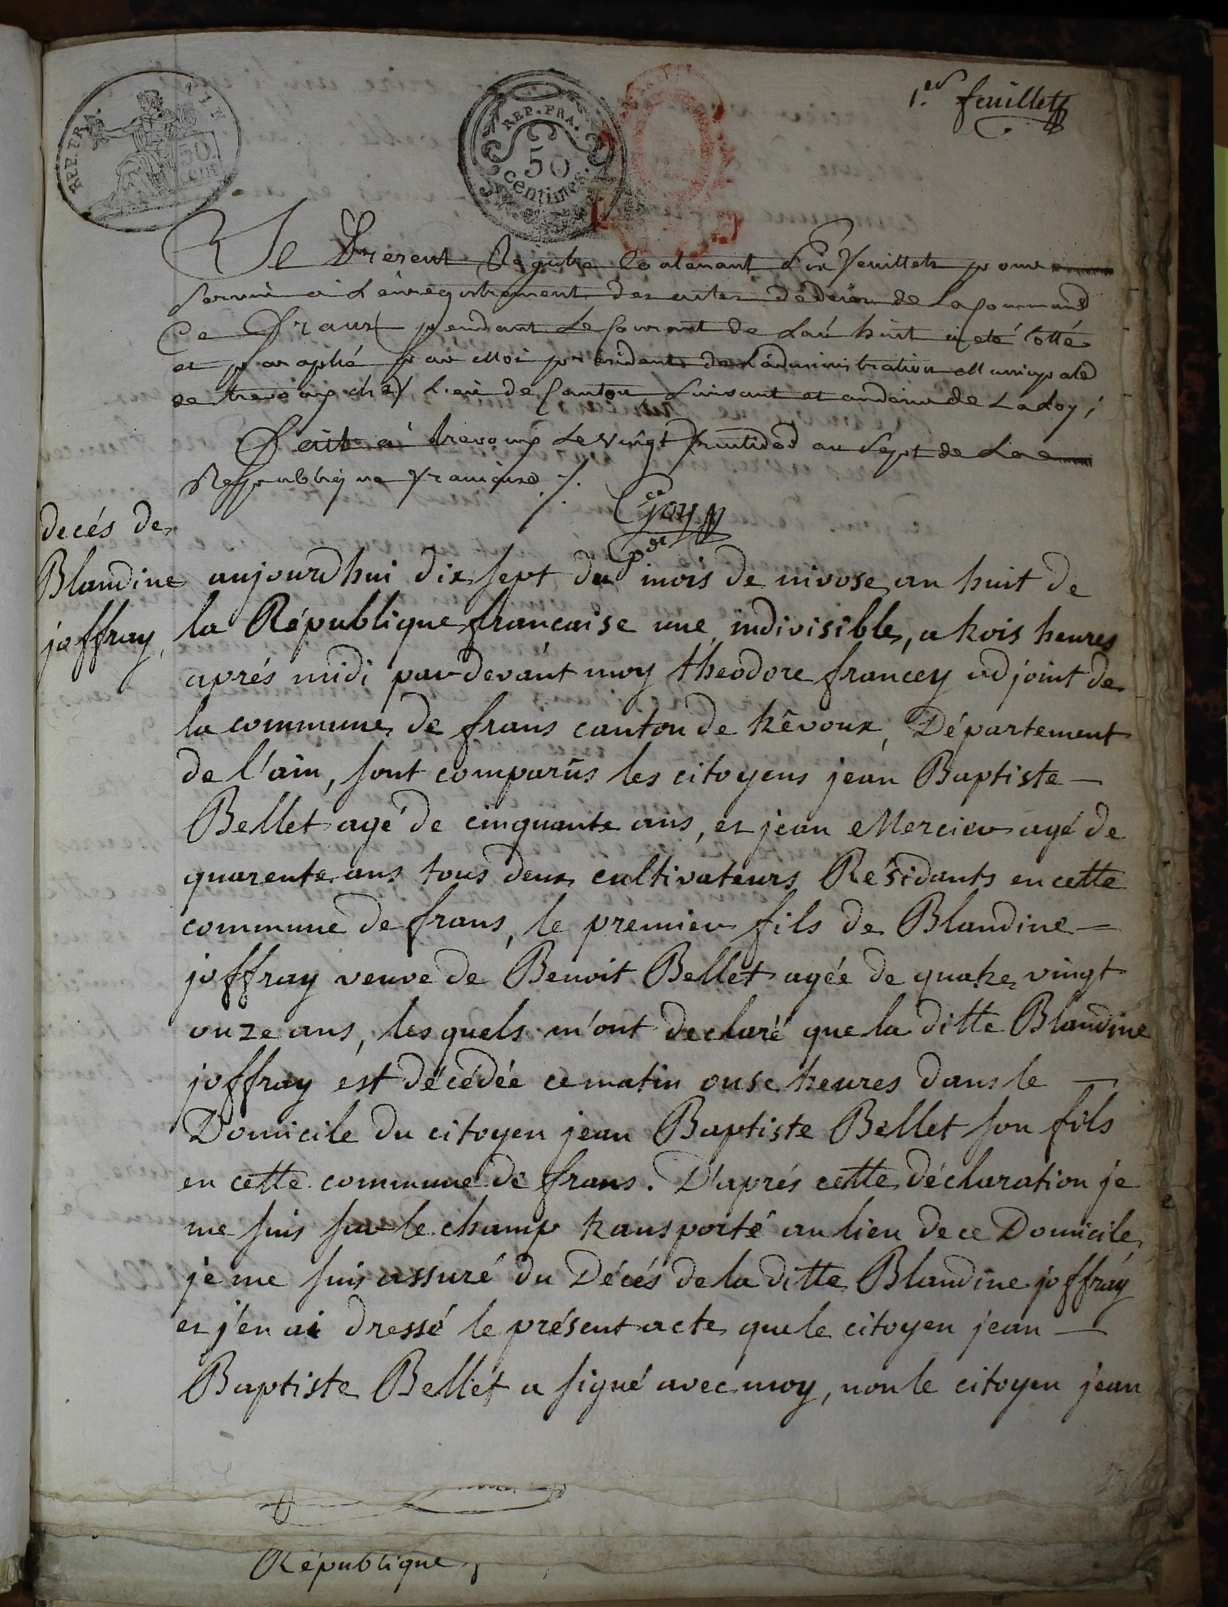 1.er feuillet
REP. FRA.
50 CENT
REP. FRA.
50
centimes
Le Présent Registre Contenant Dix feuillets pour
Servir a L'enregistrement des actes de décès de La Commune
De Frans pendant Le Courant de L'an huit a été Cotté
et paraphé par Moi président de L'administration Municipale
de trevoux chef Lieu de Canton Suivant et au desir de La Loy;
Fait à trevoux Le vingt fructidor an Sept de La
Republique françaisse ./.
Goy
pdt
decés de
Blandine
joffray,
aujourdhui dix sept du mois de nivose an huit de
la République francaise une indivisible, a trois heures
aprés midi pardevant moy théodore francey adjoint de
la commune de frans canton de trêvoux, Département
de l'ain, sont comparûs les citoyens jean Baptiste
Bellet agé de cinquante ans, et jean Mercier agé de
quarente ans tous deux cultivateurs Résidants en cette
commune de frans, le premier fils de Blandine
joffray veuve de Benoit Bellet agée de quatre vingt
onze ans, les quels m'ont declaré que la ditte Blandine
joffray est décédée ce matin onse heures dans le
Domicile du citoyen jean Baptiste Bellet son fils
en cette commune de frans. D'aprés cette déclaration je
me suis sur le champ transporté au lieu de ce Domicile,
je me suis assuré du Décés de la ditte Blandine joffray
et j'en ai dressé le présent acte que le citoyen jean
Baptiste Bellet a signé avec moy, non le citoyen jean
République